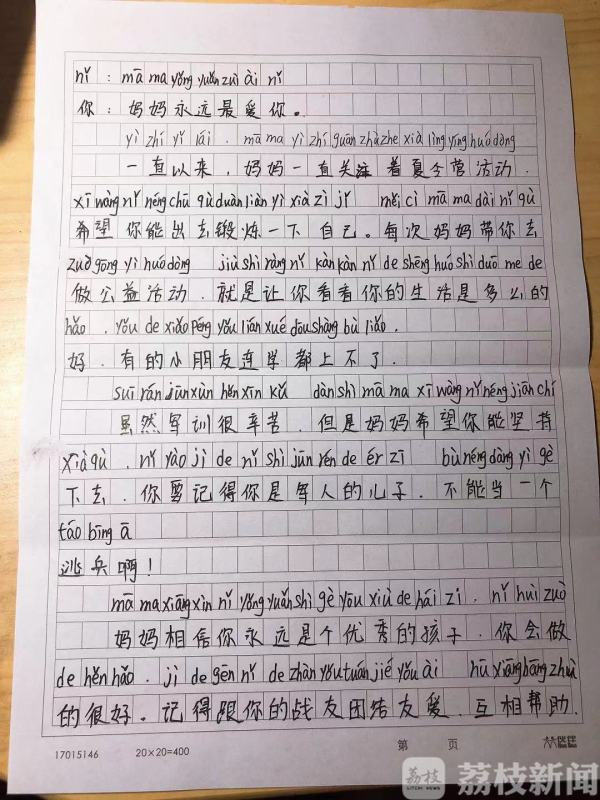 nǐ : mā ma yǒng yuǎn zuì ài nǐ
你：妈妈永远最爱你。
yì zhí yǐ lái . mā ma yì zhí guān zhù zhe xià lìng yíng huó dòng
一直以来，妈妈一直关注着夏令营活动.
xī wàng nǐ néng chū qù duàn liàn yí xià zì jǐ měi cì mā ma dài nǐ qù
希望你能出去锻炼一下自己。每次妈妈带你去
zuò gōng yì huó dòng jiù shì ràng nǐ kàn kàn nǐ de shēng huó shì duō me de
做公益活动.就是让你看看你的生活是多么的
hǎo . yǒu de xiǎo péng yǒu lián xué dōu shàng bù liǎo .
好.有的小朋友连学都上不了.
suī rán jūn xùn hěn xīn kǔ dàn shì mā ma xī wàng nǐ néng jiān chí
虽然军训很辛苦.但是妈妈希望你能坚持
xià qù . nǐ yào jì de nǐ shì jūn rén de ér zi bù néng dāng yí gè
下去.你要记得你是军人的儿子.不能当一个
táo bīng ā
逃兵啊！
mā ma xiāng xìn nǐ yǒng yuǎn shì gè yōu xiù de hái zi . nǐ huì zuò
妈妈相信你永远是个优秀的孩子.你会做
de hěn hǎo . jì de gēn nǐ de zhàn yǒu tuán jié yǒu ài hù xiāng bāng zhù
的很好。记得跟你的战友团结友爱.互相帮助.
17015146 20×20=400 第 页
荔枝 LITCHI NEWS 荔枝新闻